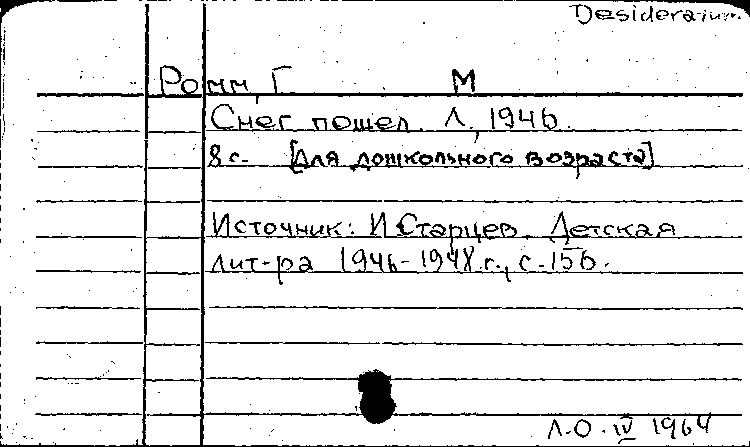 Desideratum
Ромм, Г. М
Снег пошел. Л., 1946.
8 с. [Для дошкольного возраста]
Источник: И. Старцев. Детская
лит-ра 1946-1948 г., с. 156.
Л.О. IV 1964